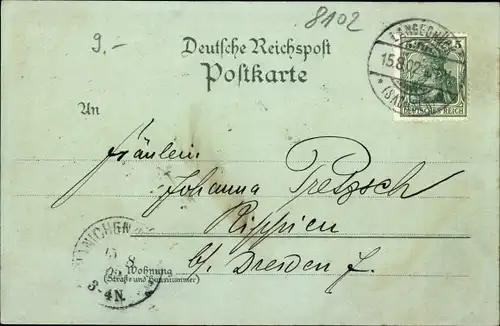 8102
9.-
Deutsche Reichspost
Postkarte
LANGEBRÜCK
5
15.8.02
* (SACHSEN)
DEUTSCHES REICH
An
Fräulein
Johanna Pretzsch
Rippien
b/ Dresden
15 8
02
3-4N.
Wohnung
(Straße und Hausnummer)